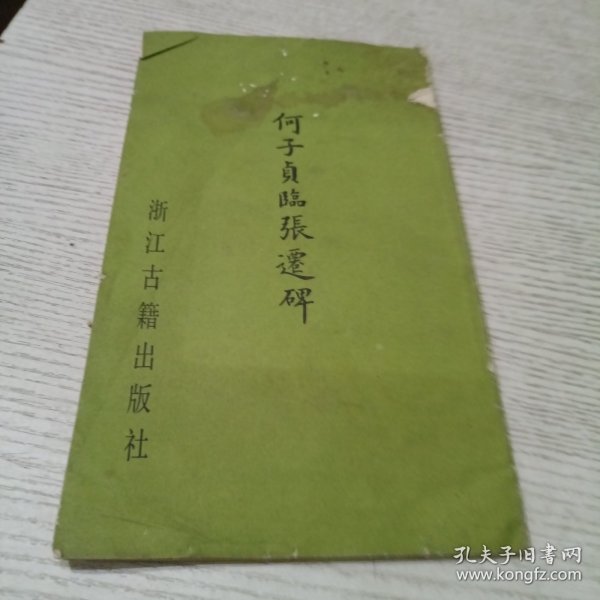 何子貞臨張遷碑
浙江古籍出版社
孔夫子旧书网
www.kongfz.com